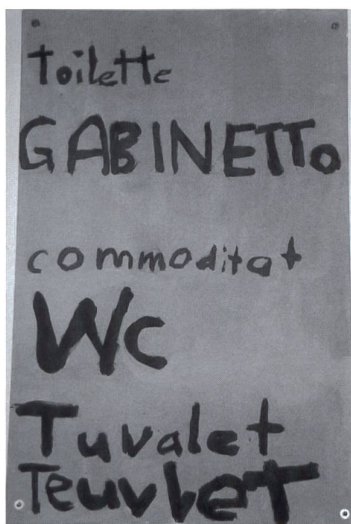 toilette
GABINETTo
commoditat
Wc
Tuvalet
TeuvleT